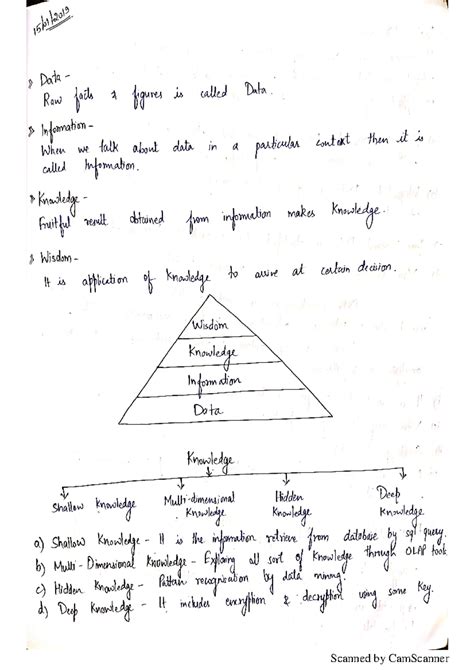 15/01/2019
Data -
Raw facts & figures is called Data.
Information -
When we talk about data in a particular context then it is
called Information.
Knowledge -
Fruitful result obtained from information makes Knowledge.
Wisdom -
It is application of Knowledge to arrive at certain decision.
Wisdom
Knowledge
Information
Data
Knowledge
Shallow Knowledge
Multi-dimensional Knowledge
Hidden Knowledge
Deep Knowledge
a) Shallow Knowledge - It is the information retrieve from database by sql query.
b) Multi-Dimensional Knowledge - Exploring all sort of Knowledge through OLAP tools
c) Hidden Knowledge - Pattern recognition by data mining.
d) Deep Knowledge - It includes encryption & decryption using some Key.
Scanned by CamScanner